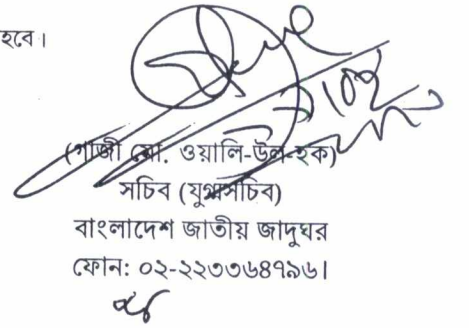 হবে।
(গাজী মো. ওয়ালি-উল-হক)
সচিব (যুগ্মসচিব)
বাংলাদেশ জাতীয় জাদুঘর
ফোন: ০২-২২৩৩৬৪৭৯৬।